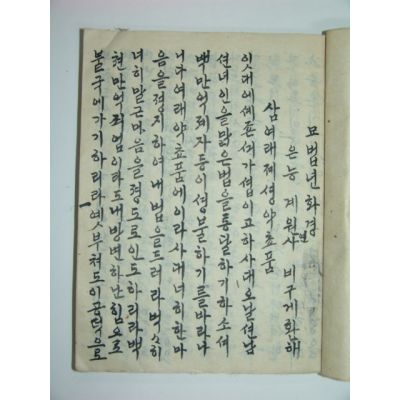 묘법년화경
은능 계원사 비구계환해
연
삼여래졔셩약쵸품
잇대에셰죤셔가셥이고하사대오날션남
션녀인을맑은법을통달하기하소셔
백만억졔자등이셩불하기를바리나
니다여래약쵸품에이라사대너희한마
음을졍지하여내법을드르라벅스히
너희말근마음을졍도로인도하리라백
쳔만억죄업이라도내방변하난힘으로
불국에가기하리라옛부쳐도이공덕으로